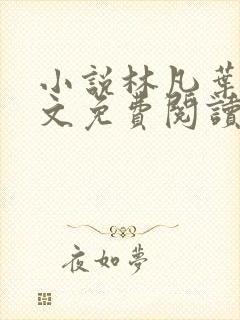 小說林凡葉
文免費閱讀
夜如夢